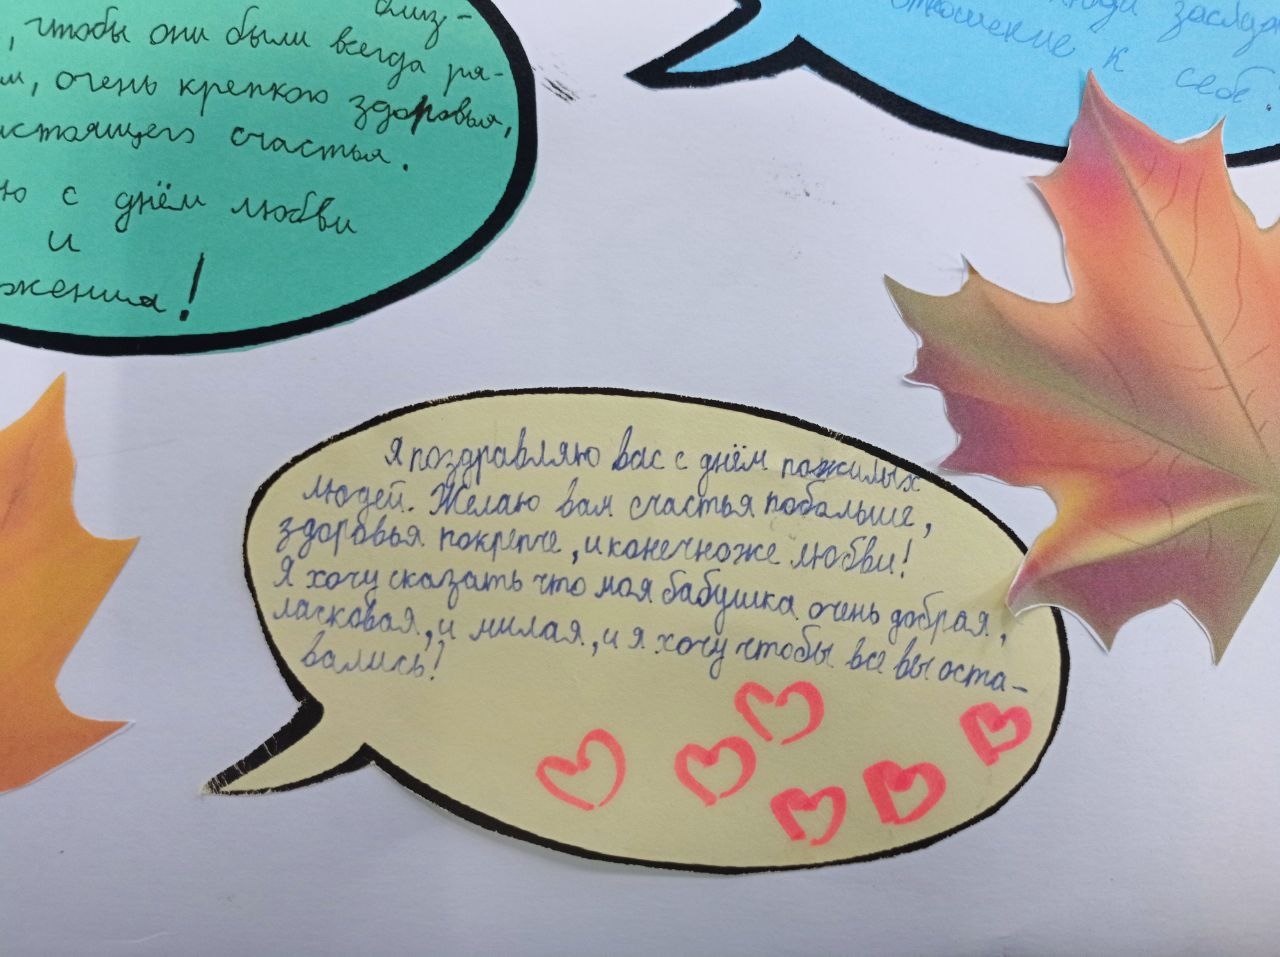 близ-
, чтобы они были всегда ря-
м, очень крепкого здоровья,
истоящего счастья.
ю с днём любви
и
жения!
заслуж
отношение к себе.
Я поздравляю вас с днём пожилых
людей. Желаю вам счастья побольше,
здоровья покрепче, и конечноже любви!
Я хочу сказать что моя бабушка очень добрая,
ласковая, и милая, и я хочу чтобы все вы оста-
вались!